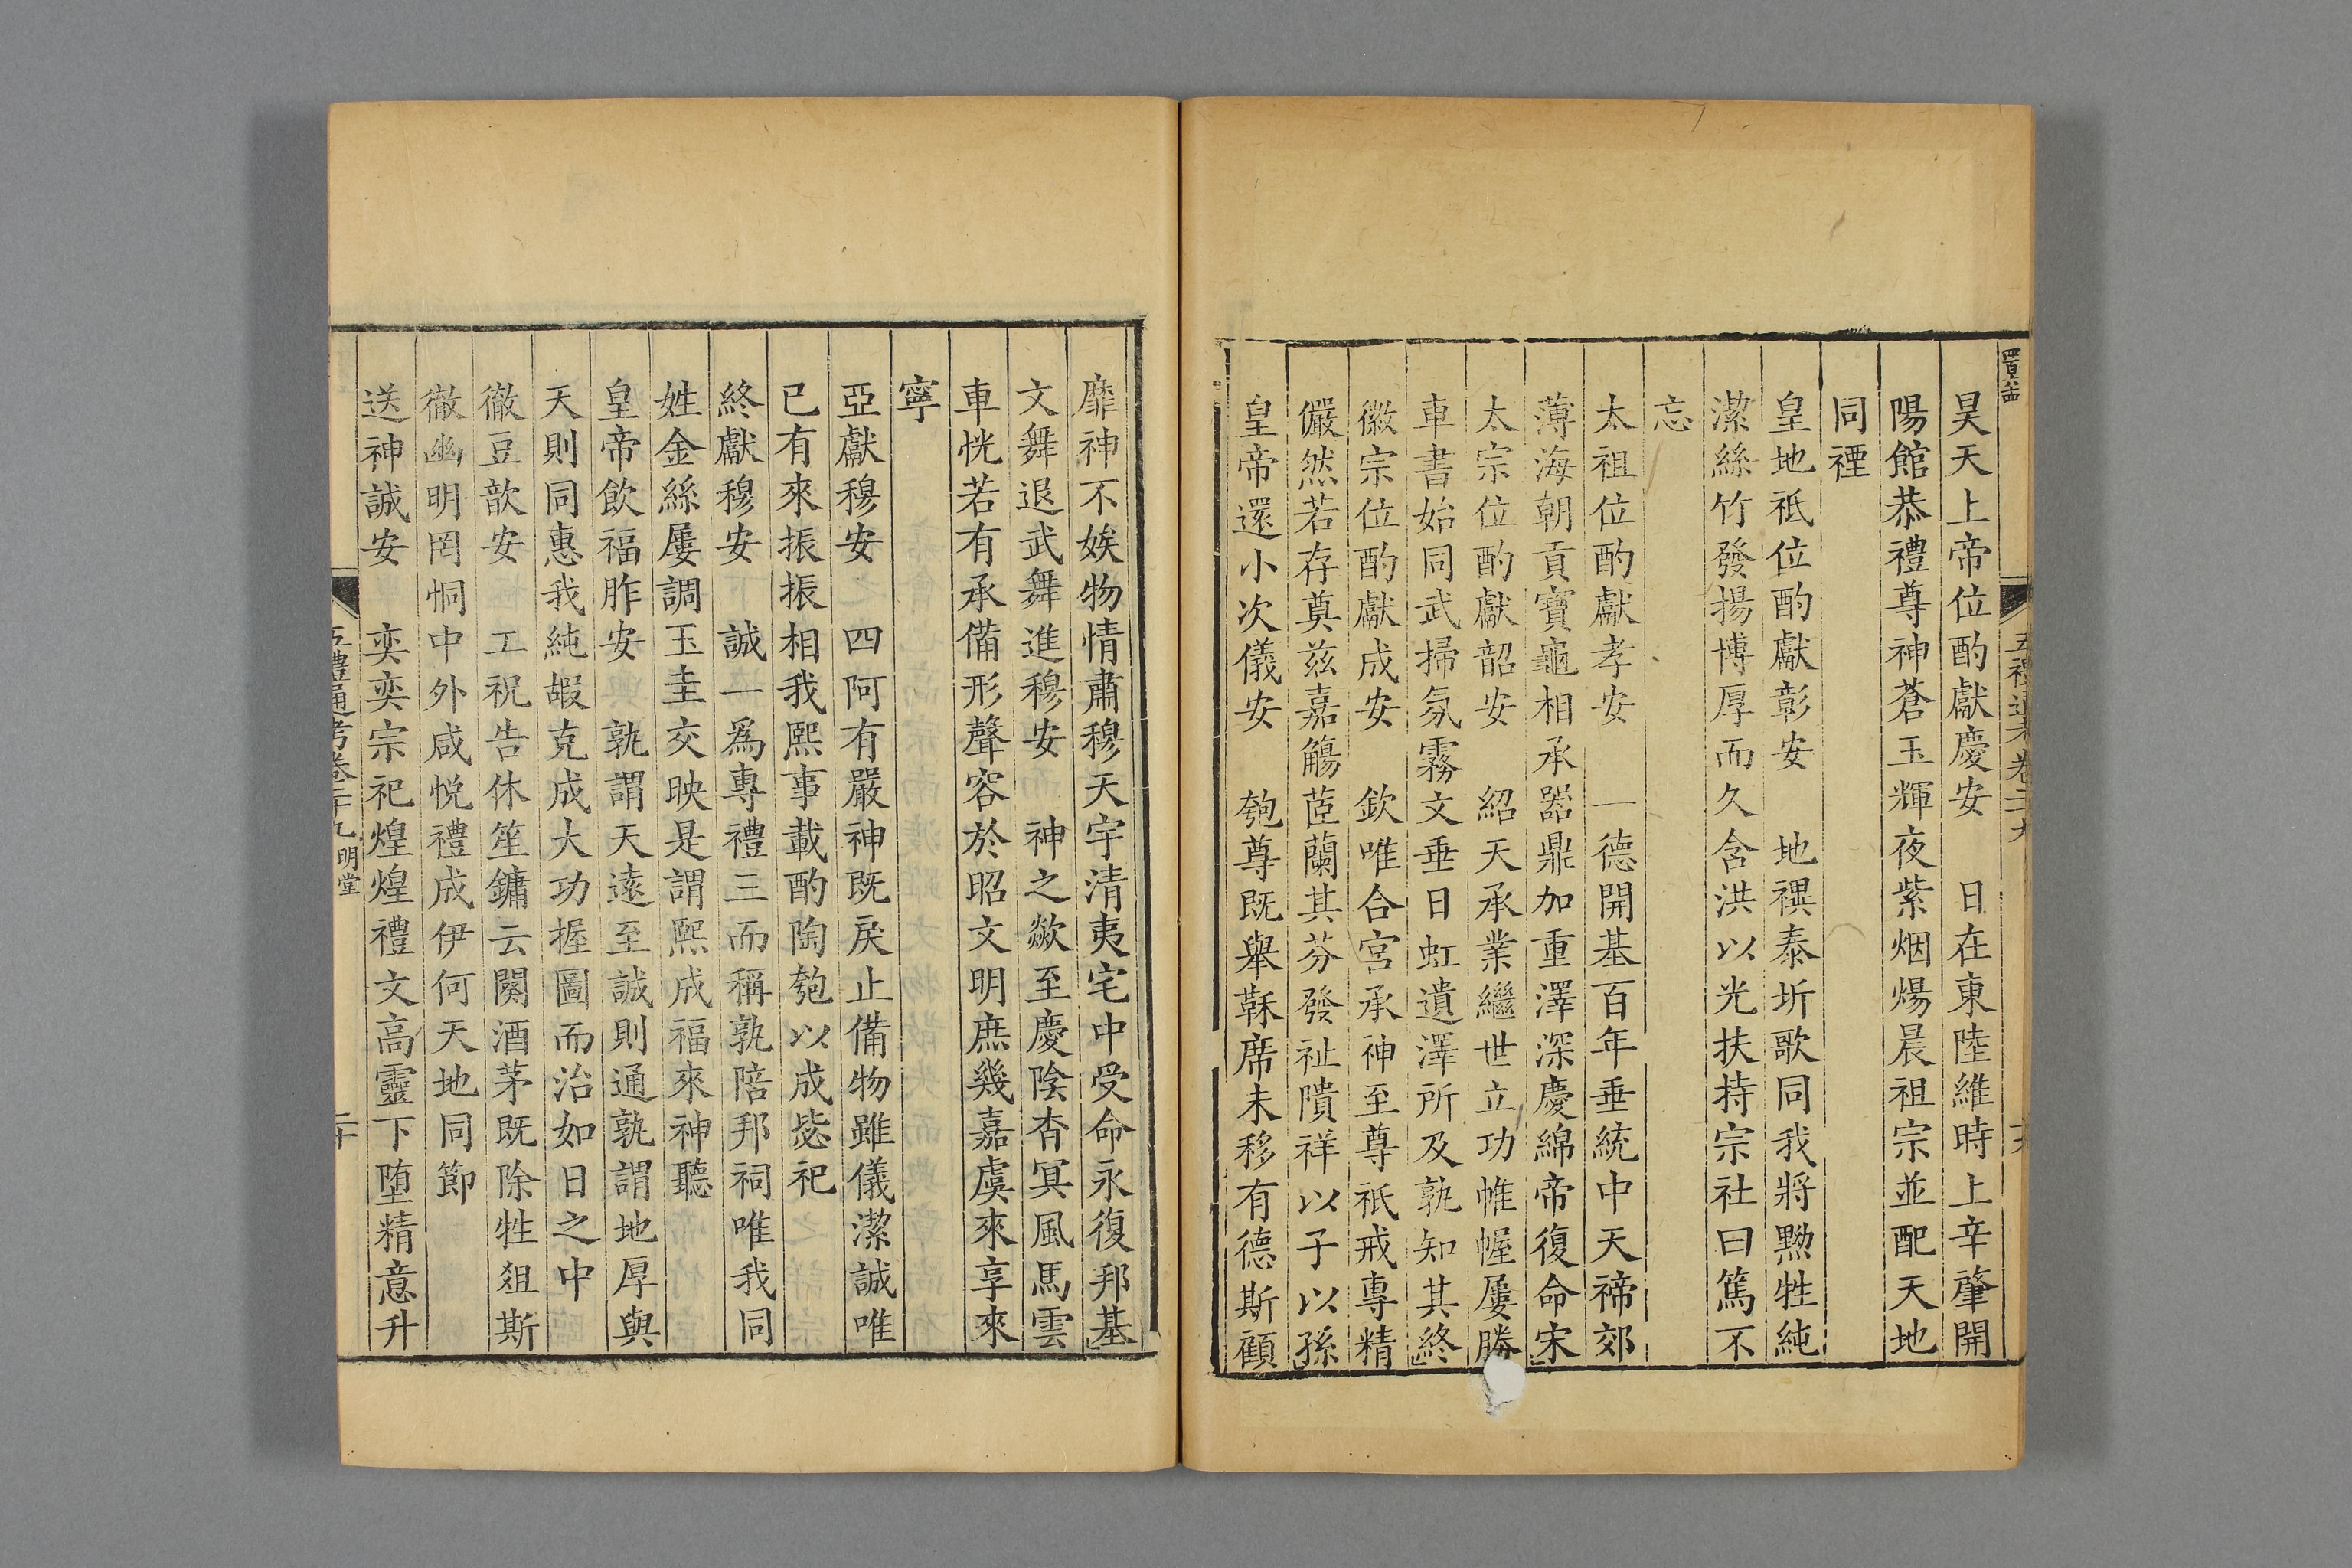 昊天上帝位酌獻慶安　日在東陸維時上辛肇開
陽館恭禮尊神蒼玉輝夜紫烟煬晨祖宗並配天地
同禋
皇地祇位酌獻彰安　地禩泰圻歌同我將黝牲純
潔絲竹發揚博厚而久含洪以光扶持宗社曰篤不
忘
太祖位酌獻孝安　一德開基百年垂統中天禘郊
薄海朝貢寶龜相承器鼎加重澤深慶綿帝復命宋
太宗位酌獻韶安　紹天承業繼世立功帷幄屢勝
車書始同武掃氛霧文垂日虹遺澤所及孰知其終
徽宗位酌獻成安　欽唯合宮承神至尊祇戒專精
儼然若存奠茲嘉觴茝蘭其芬發祉隤祥以子以孫
皇帝還小次儀安　匏尊既舉鞂席未移有德斯顧
靡神不娭物情肅穆天宇清夷宅中受命永復邦基
文舞退武舞進穆安　神之歘至慶陰杳冥風馬雲
車恍若有承備形聲容於昭文明庶幾嘉虞來享來
寧
亞獻穆安　四阿有嚴神既戾止備物雖儀潔誠唯
已有來振振相我熙事載酌陶匏以成毖祀
終獻穆安　誠一爲專禮三而稱孰陪邦祠唯我同
姓金絲屢調玉圭交映是謂熙成福來神聽
皇帝飲福胙安　孰謂天遠至誠則通孰謂地厚與
天則同惠我純嘏克成大功握圖而治如日之中
徹豆歆安　工祝告休笙鏞云闋酒茅既除牲俎斯
徹幽明罔恫中外咸悅禮成伊何天地同節
送神誠安　奕奕宗祀煌煌禮文高靈下堕精意升
五禮通考卷二十九 明堂
二十